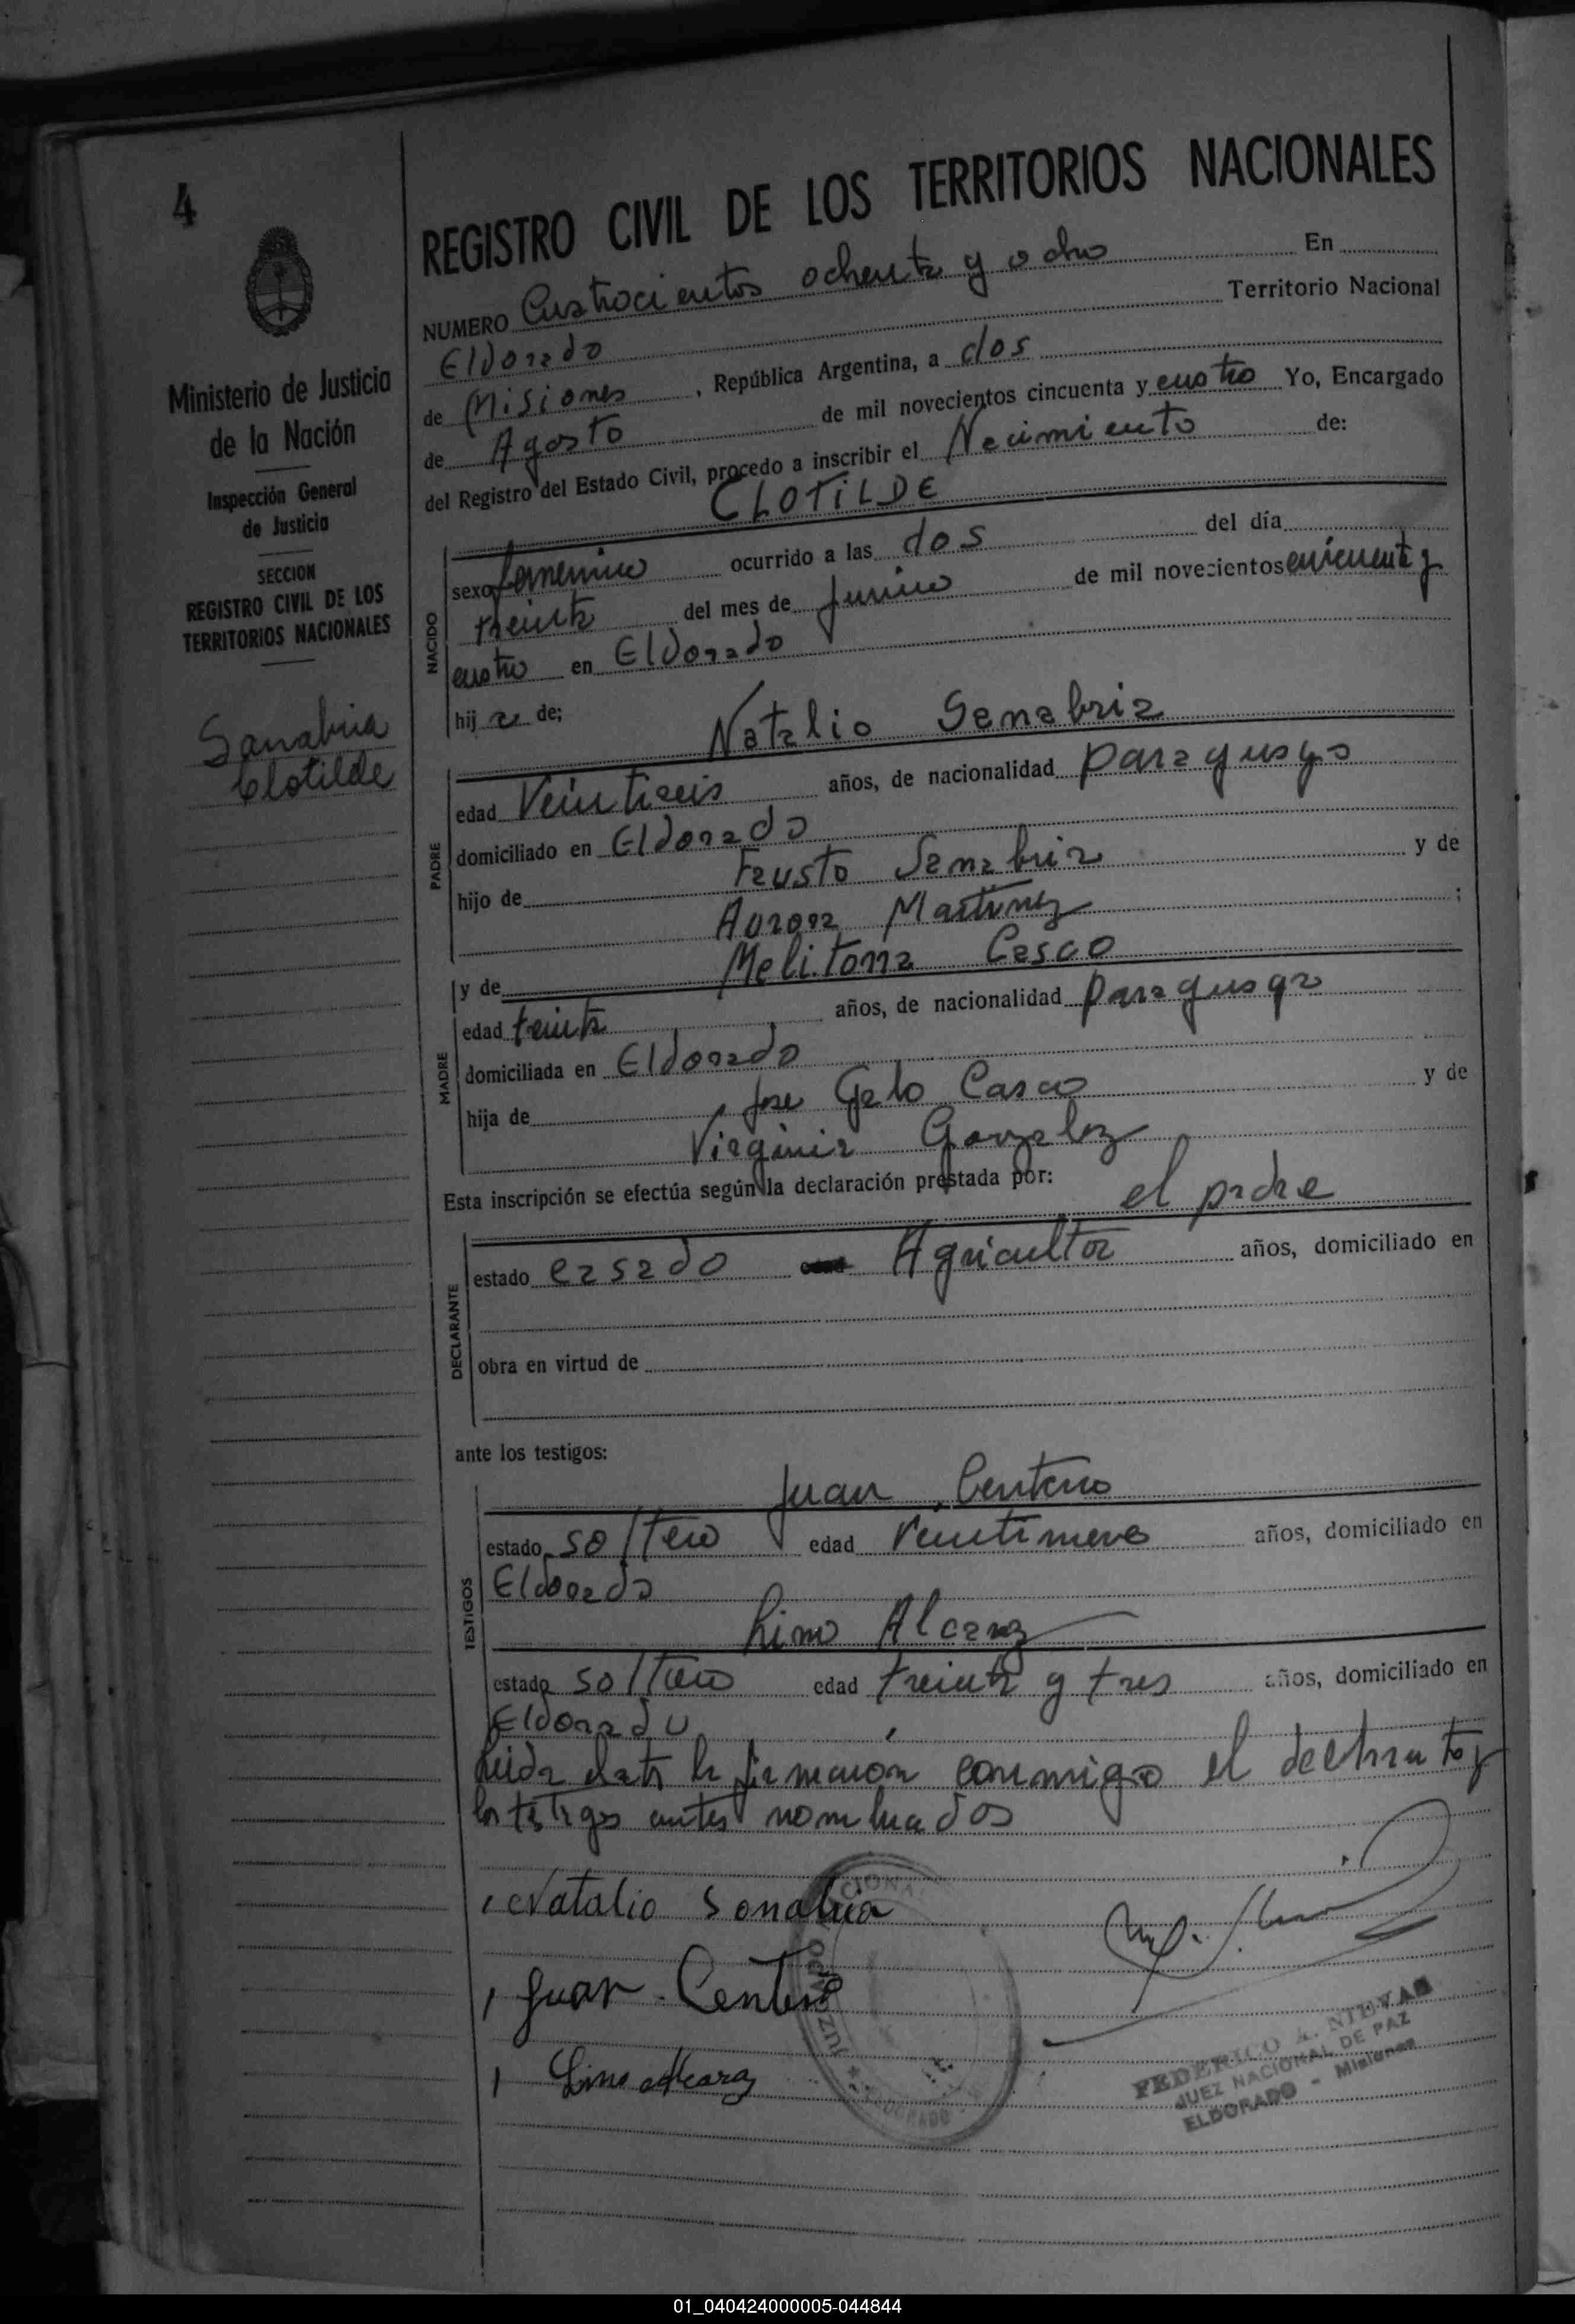 4
Ministerio de Justicia
de la Nación
Inspección General
de Justicia
SECCION
REGISTRO CIVIL DE LOS
TERRITORIOS NACIONALES
Sanabria
Clotilde
REGISTRO CIVIL DE LOS TERRITORIOS NACIONALES
NUMERO Cuatrocientos ochenta y ocho En
Eldorado Territorio Nacional
de Misiones, República Argentina, a dos
de Agosto de mil novecientos cincuenta y cuatro Yo, Encargado
del Registro del Estado Civil, procedo a inscribir el Nacimiento de:
CLOTILDE
NACIDO
sexo femenino ocurrido a las dos del día
treinta del mes de Junio de mil novecientos cincuenta y
cuatro en Eldorado
hija de;
Natalio Sanabria
PADRE
edad Veintiseis años, de nacionalidad paraguayo
domiciliado en Eldorado
hijo de Fausto Sanabria y de
Aurora Martinez ;
y de Melitona Casco
MADRE
edad treinta años, de nacionalidad paraguaya
domiciliada en Eldorado
hija de Jose Casco y de
Virginia Gonzalez
Esta inscripción se efectúa según la declaración prestada por:
el padre
DECLARANTE
estado casado Agricultor años, domiciliado en
obra en virtud de
ante los testigos:
Juan Centeno
TESTIGOS
estado soltero edad Veintinueve años, domiciliado en
Eldorado
Lino Alcaraz
estado soltero edad treinta y tres años, domiciliado en
Eldorado
Leida el acta la firmaron conmigo el declarante y
los testigos antes nombrados
Natalio Sonabria
Juan Centeno
Lino Alcaraz
FEDERICO A. NIEVAS
JUEZ NACIONAL DE PAZ
ELDORADO - Misiones
01_040424000005-044844